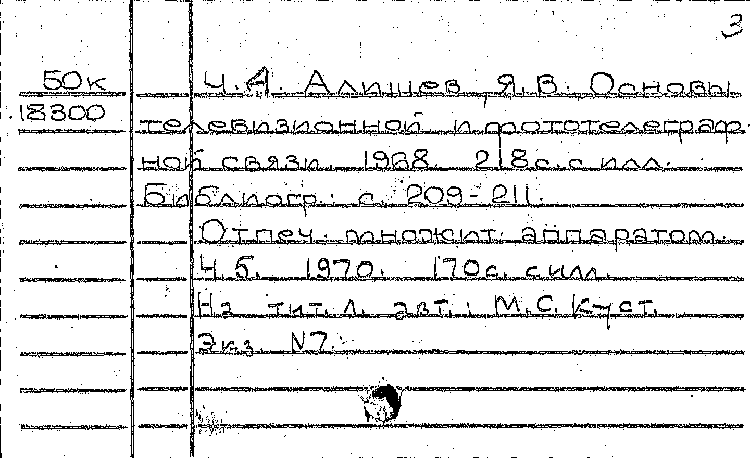 3
50к Ч.А. Алишев, Я.В. Основы
18300 телевизионной и фототелеграф-
ной связи. 1968. 218с. с илл.
Библиогр.: с. 209-211.
Отпеч. множит. аппаратом.
Ч.б. 1970. 170с. с илл.
На тит. л. авт.: М.С. Куст.
Экз. N7.